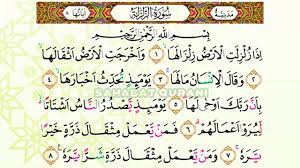 مدنية سورة الزلزلة آياتها ٨
بِسْمِ اللَّهِ الرَّحْمَٰنِ الرَّحِيمِ
إِذَا زُلْزِلَتِ الْأَرْضُ زِلْزَالَهَا ١ وَأَخْرَجَتِ الْأَرْضُ أَثْقَالَهَا
٢ وَقَالَ الْإِنْسَانُ مَا لَهَا ٣ يَوْمَئِذٍ تُحَدِّثُ أَخْبَارَهَا ٤
بِأَنَّ رَبَّكَ أَوْحَىٰ لَهَا ٥ يَوْمَئِذٍ يَصْدُرُ النَّاسُ أَشْتَاتًا
لِيُرَوْا أَعْمَالَهُمْ ٦ فَمَنْ يَعْمَلْ مِثْقَالَ ذَرَّةٍ خَيْرًا
يَرَهُ ٧ وَمَنْ يَعْمَلْ مِثْقَالَ ذَرَّةٍ شَرًّا يَرَهُ ٨
SAHABAT QURANI